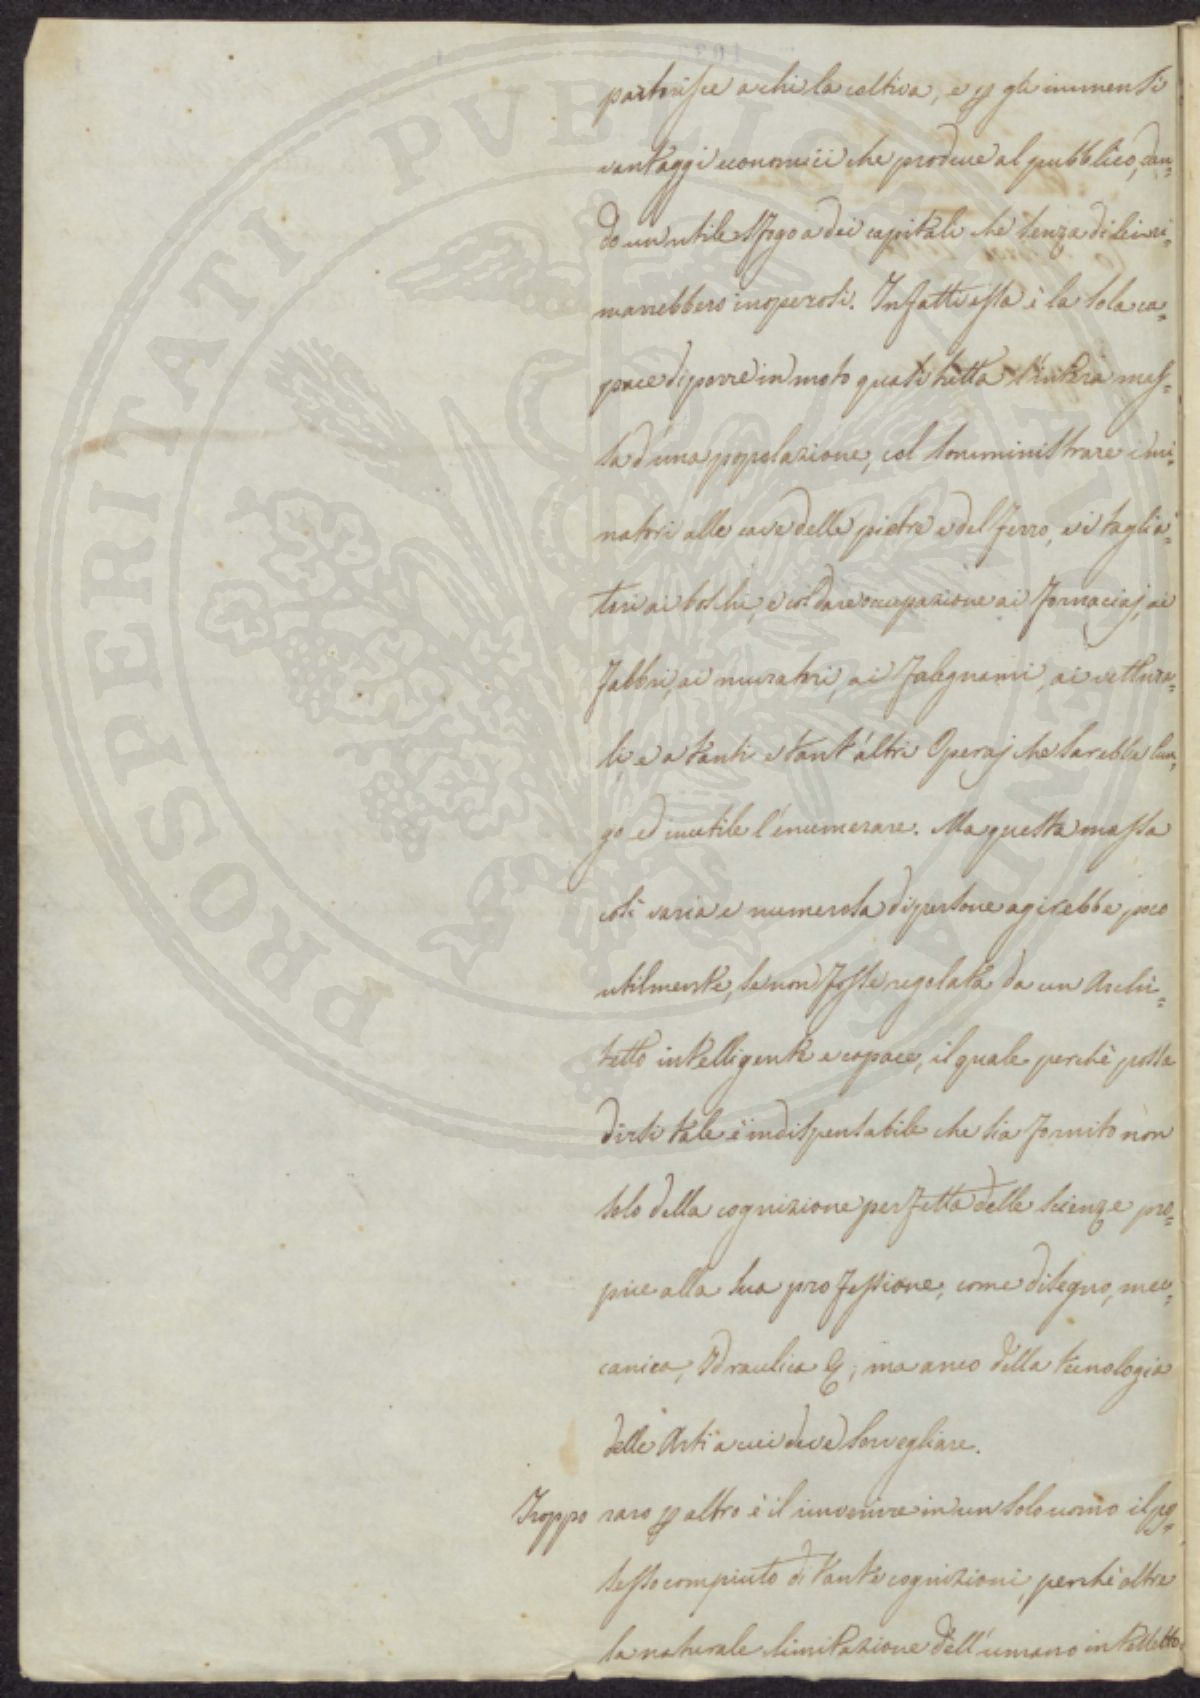 PROSPERITATI PVBLICAE
partorisce a chi la coltiva, e p gli immensi
vantaggi economici che produce al pubblico, dan=
do un utile sfogo a dei capitali che senza di lei ri=
marrebbero inoperosi. Infatti essa è la sola ca=
pace di porre in moto quasi tutta l'intera mas=
sa d'una popolazione, col somministrare i mi=
natori alle cave delle pietre e del ferro, e i taglia=
tori ai boschi, e col dare occupazione ai fornaciaj, ai
fabbri, ai muratori, ai falegnami, ai vettura=
li, e a tanti e tant'altri Operaj che sarebbe lun=
go ed inutile l'enumerare. Ma questa massa
così varia e numerosa di persone agirebbe poco
utilmente, se non fosse regolata da un Archi=
tetto intelligente e capace, il quale perchè possa
dirsi tale è indispensabile che sia fornito non
solo della cognizione perfetta delle scienze pro=
prie alla sua professione, come disegno, mec=
canica, Idraulica &; ma anco della tecnologia
delle Arti a cui deve sorvegliare.
Troppo raro p altro è il rinvenire in un solo uomo il pos=
sesso compiuto di tante cognizioni, perchè oltre
la naturale limitazione dell'umano intelletto